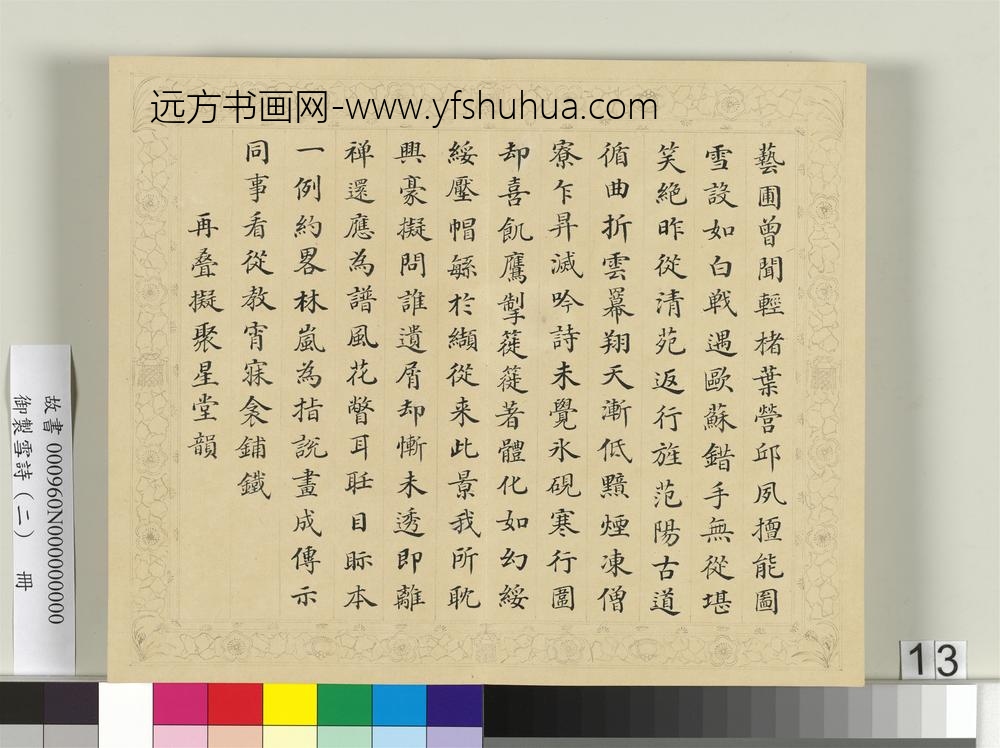 远方书画网-www.yfshuhua.com
藝圃曾聞輕楮葉營邱夙擅能圖
雪設如白戰遇歐蘇錯手無從堪
笑絶昨從清苑返行旌范陽古道
循曲折雲幕翔天漸低黯煙凍僧
寮乍昇滅吟詩未覺氷硯寒行圍
却喜飢鷹掣簁簁著體化如幻綏
綏壓帽緐於纈從来此景我所耽
興豪擬問誰遺屑却慚未透即離
禅還應為譜風花瞥耳䀴目眎本
一例約畧林嵐為指說畫成傳示
同事看從教宵寐衾鋪鐵
再叠擬聚星堂韻
故書 000960N000000000
御製雪詩(二) 冊
13